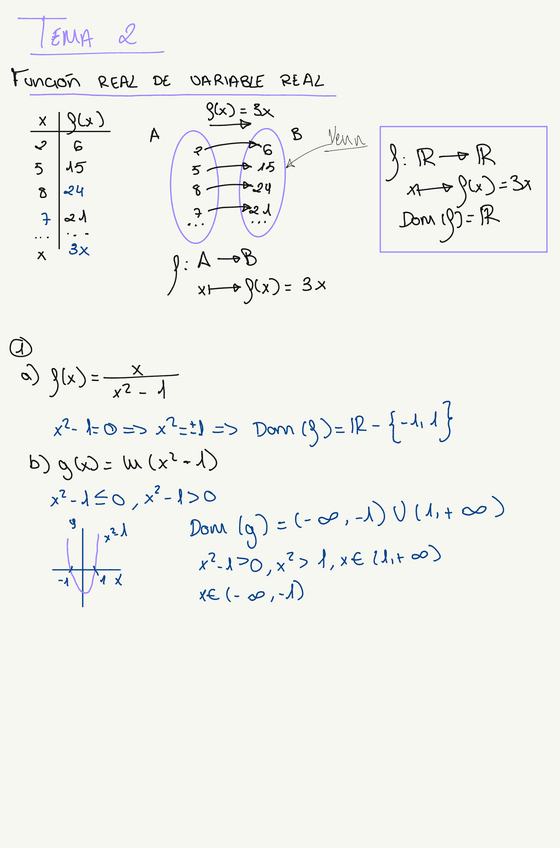 TEMA 2
Función REAL DE VARIABLE REAL
x f(x)
2 6
5 15
8 24
7 21
... ...
x 3x
f(x) = 3x
A B
Venn
2 6
5 15
8 24
7 21
... ...
f: A → B
x ↦ f(x) = 3x
f: ℝ → ℝ
x ↦ f(x) = 3x
Dom (f) = ℝ
①
a) f(x) = x / (x² - 1)
x² - 1 = 0 => x² = ±1 => Dom (f) = ℝ - {-1, 1}
b) g(x) = ln (x² - 1)
x² - 1 ≤ 0, x² - 1 > 0
y
x²-1
-1 1 x
Dom (g) = (-∞, -1) ∪ (1, +∞)
x² - 1 > 0, x² > 1, x ∈ (1, +∞)
x ∈ (-∞, -1)